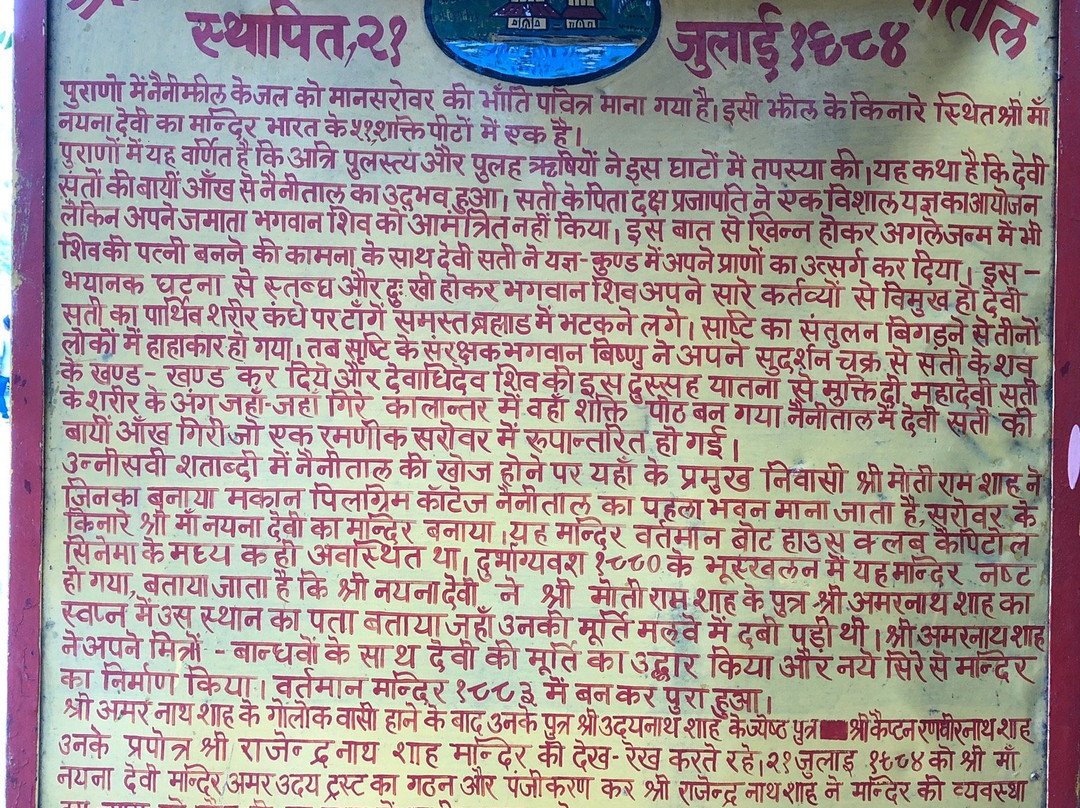 स्थापित,२१ जुलाई १९८४
पुराणो में नैनी झील के जल को मानसरोवर की भाँति पवित्र माना गया है। इसी झील के किनारे स्थित श्री माँ
नयना देवी का मन्दिर भारत के ५१ शक्ति पीठों में एक है।
पुराणों में यह वर्णित है कि अत्रि पुलस्त्य और पुलह ऋषियों ने इस घाटी में तपस्या की। यह कथा है कि देवी
सती की बायीं आँख से नैनीताल का उद्भव हुआ। सती के पिता दक्ष प्रजापति ने एक विशाल यज्ञ का आयोजन
लेकिन अपने जमाता भगवान शिव को आमंत्रित नहीं किया। इस बात से खिन्न होकर अगले जन्म में भी
शिव की पत्नी बनने की कामना के साथ देवी सती ने यज्ञ-कुण्ड में अपने प्राणों का उत्सर्ग कर दिया। इस-
भयानक घटना से स्तब्ध और दुःखी होकर भगवान शिव अपने सारे कर्तव्यों से विमुख हो देवी
सती का पार्थिव शरीर कंधे पर टाँगें समस्त ब्रह्माड में भटकने लगे। सृष्टि का संतुलन बिगड़ने से तीनों
लोकों में हाहाकार हो गया। तब सृष्टि के संरक्षक भगवान बिष्णु ने अपने सुदर्शन चक्र से सती के शव
के खण्ड-खण्ड कर दिये और देवाधिदेव शिव की इस दुस्सह यातना से मुक्ति दी महादेवी सती
के शरीर के अंग जहाँ-जहाँ गिरे कालान्तर में वहाँ शक्ति पीठ बन गया नैनीताल में देवी सती की
बायीं आँख गिरी जो एक रमणीक सरोवर में रुपान्तरित हो गई।
उन्नीसवी शताब्दी में नैनीताल की खोज होने पर यहाँ के प्रमुख निवासी श्री मोती राम शाह ने
जिनका बनाया मकान पिलग्रिम कॉटेज नैनीताल का पहला भवन माना जाता है, सरोवर के
किनारे श्री माँ नयना देवी का मन्दिर बनाया। यह मन्दिर वर्तमान बोट हाउस क्लब कैपिटोल
सिनेमा के मध्य कही अवस्थित था। दुर्भाग्यवश १८८० के भूस्खलन में यह मन्दिर नष्ट
हो गया, बताया जाता है कि श्री नयना देवी ने श्री मोती राम शाह के पुत्र श्री अमरनाथ शाह का
स्वप्न में उस स्थान का पता बताया जहाँ उनकी मूर्ति मलवे में दबी पड़ी थी। श्री अमरनाथ शाह
ने अपने मित्रों - बान्धवों के साथ देवी की मूर्ति का उद्धार किया और नये सिरे से मन्दिर
का निर्माण किया। वर्तमान मन्दिर १८८३ में बन कर पुरा हुआ।
श्री अमर नाथ शाह के गोलोक वासी होने के बाद उनके पुत्र श्री उदयनाथ शाह के ज्येष्ठ पुत्र श्री कैप्टन रणवीरनाथ शाह
उनके प्रपोत्र श्री राजेन्द्र नाथ शाह मन्दिर की देख-रेख करते रहे। २१ जुलाई १९८४ को श्री माँ
नयना देवी मन्दिर अमर उदय ट्रस्ट का गठन और पंजीकरण कर श्री राजेन्द्र नाथ शाह ने मन्दिर की व्यवस्था